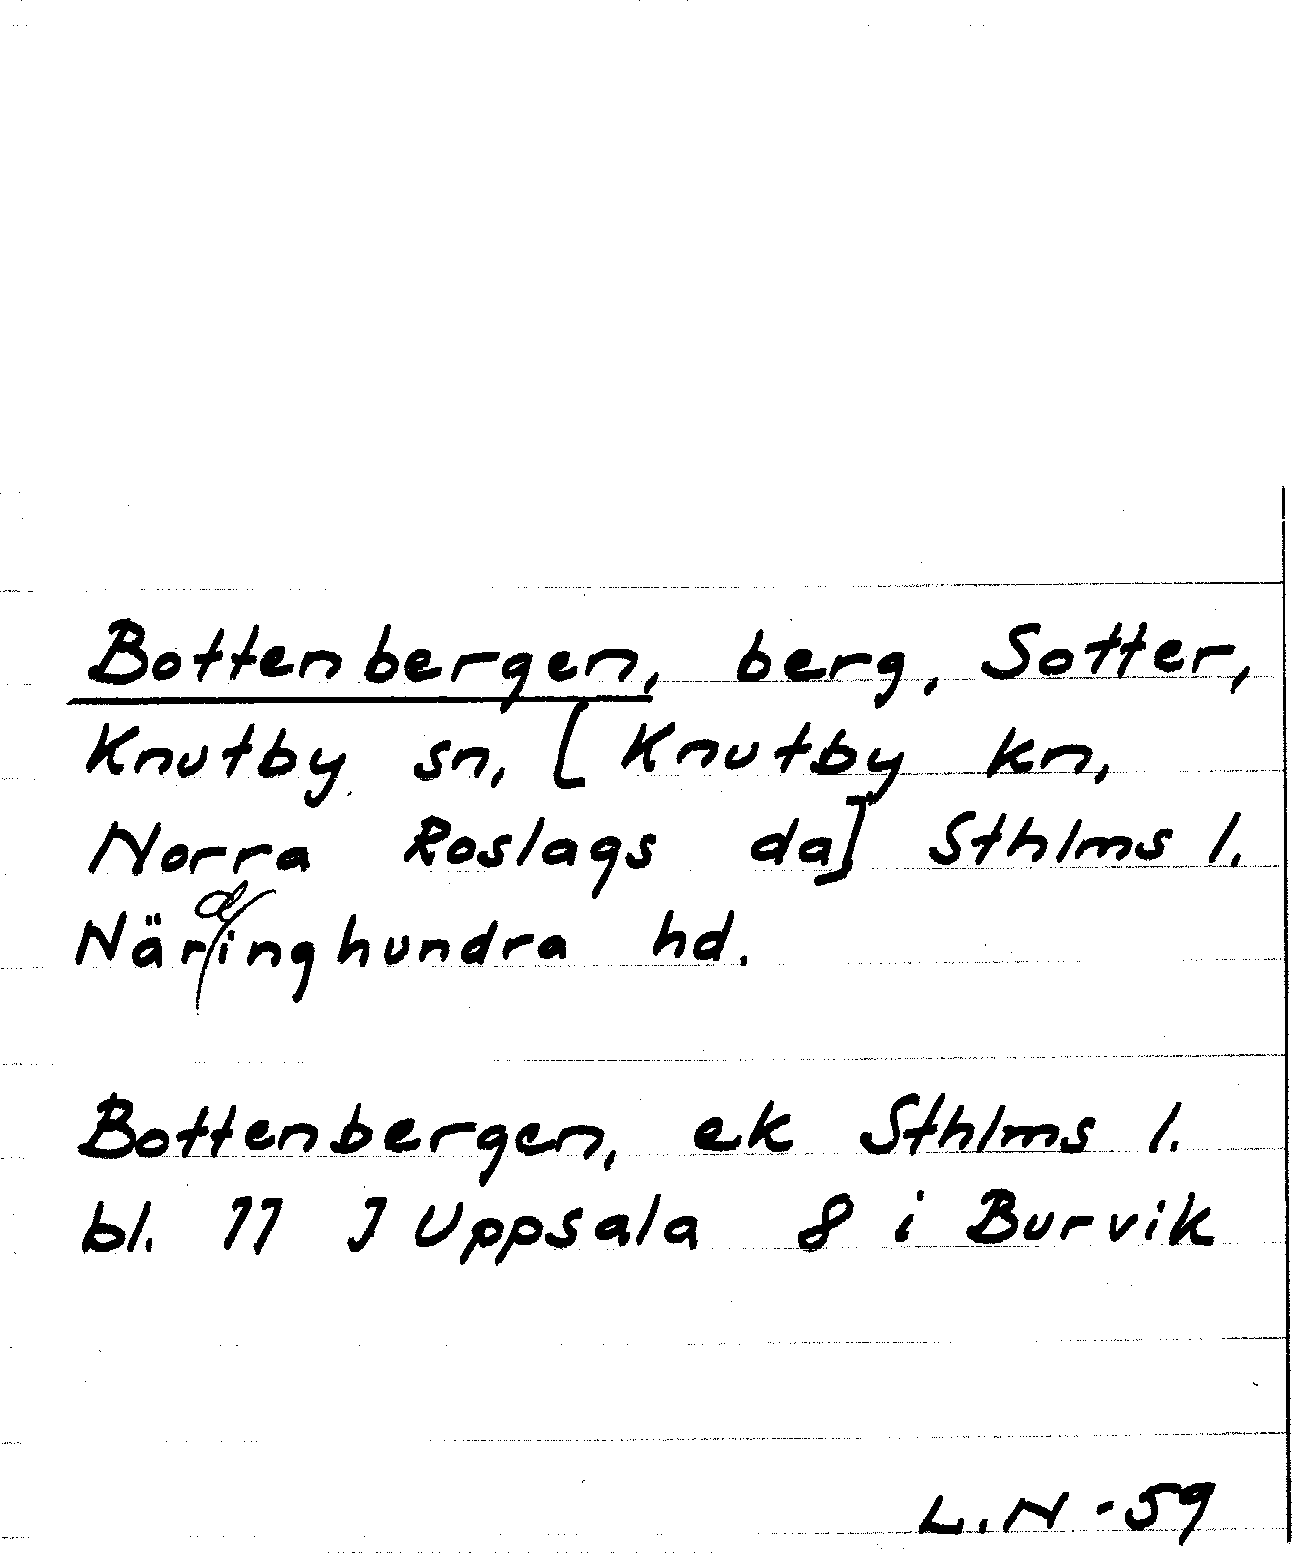 Bottenbergen, berg, Sotter,
Knutby sn, [Knutby kn,
Norra Roslags da] Sthlms l.
Närdinghundra hd.
Bottenbergen, ek Sthlms l.
bl. 77 J Uppsala 8 i Burvik
L.N - 59